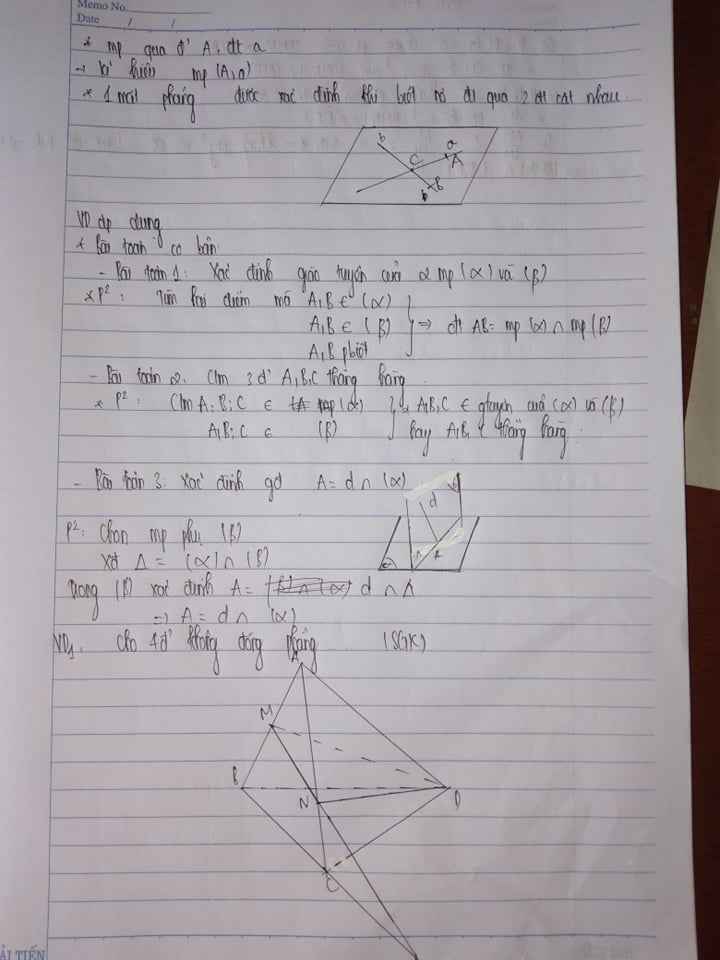 Memo No.
Date / /
* mp qua đ' A, đt a
→ kí hiệu mp (A, a)
* 1 mặt phẳng được xác định khi biết nó đi qua 2 đt cắt nhau.
b
a
C
A
b
B
VD áp dụng
* Bài toán cơ bản
- Bài toán 1: Xác định giao tuyến của 2 mp (α) và (β)
* P²: Tìm hai điểm mà A, B ∈ (α)
A, B ∈ (β) } ⇒ đt AB = mp (α) ∩ mp (β)
A, B pbiệt
- Bài toán 2. Cm 3 đ' A, B, C thẳng hàng
* P²: Cm A; B; C ∈ (α) } A, B, C ∈ gtuyến của (α) và (β)
A, B; C ∈ (β) hay A, B, C thẳng hàng
- Bài toán 3: Xác định gđ A = d ∩ (α)
d
A
P²: Chọn mp phụ (β)
Xđ Δ = (α) ∩ (β)
Trong (β) xác định A = d ∩ Δ
⇒ A = d ∩ (α)
VD1. Cho 4 đ' không đồng phẳng (SGK)
A
M
B
N
D
C
ẢI TIẾN